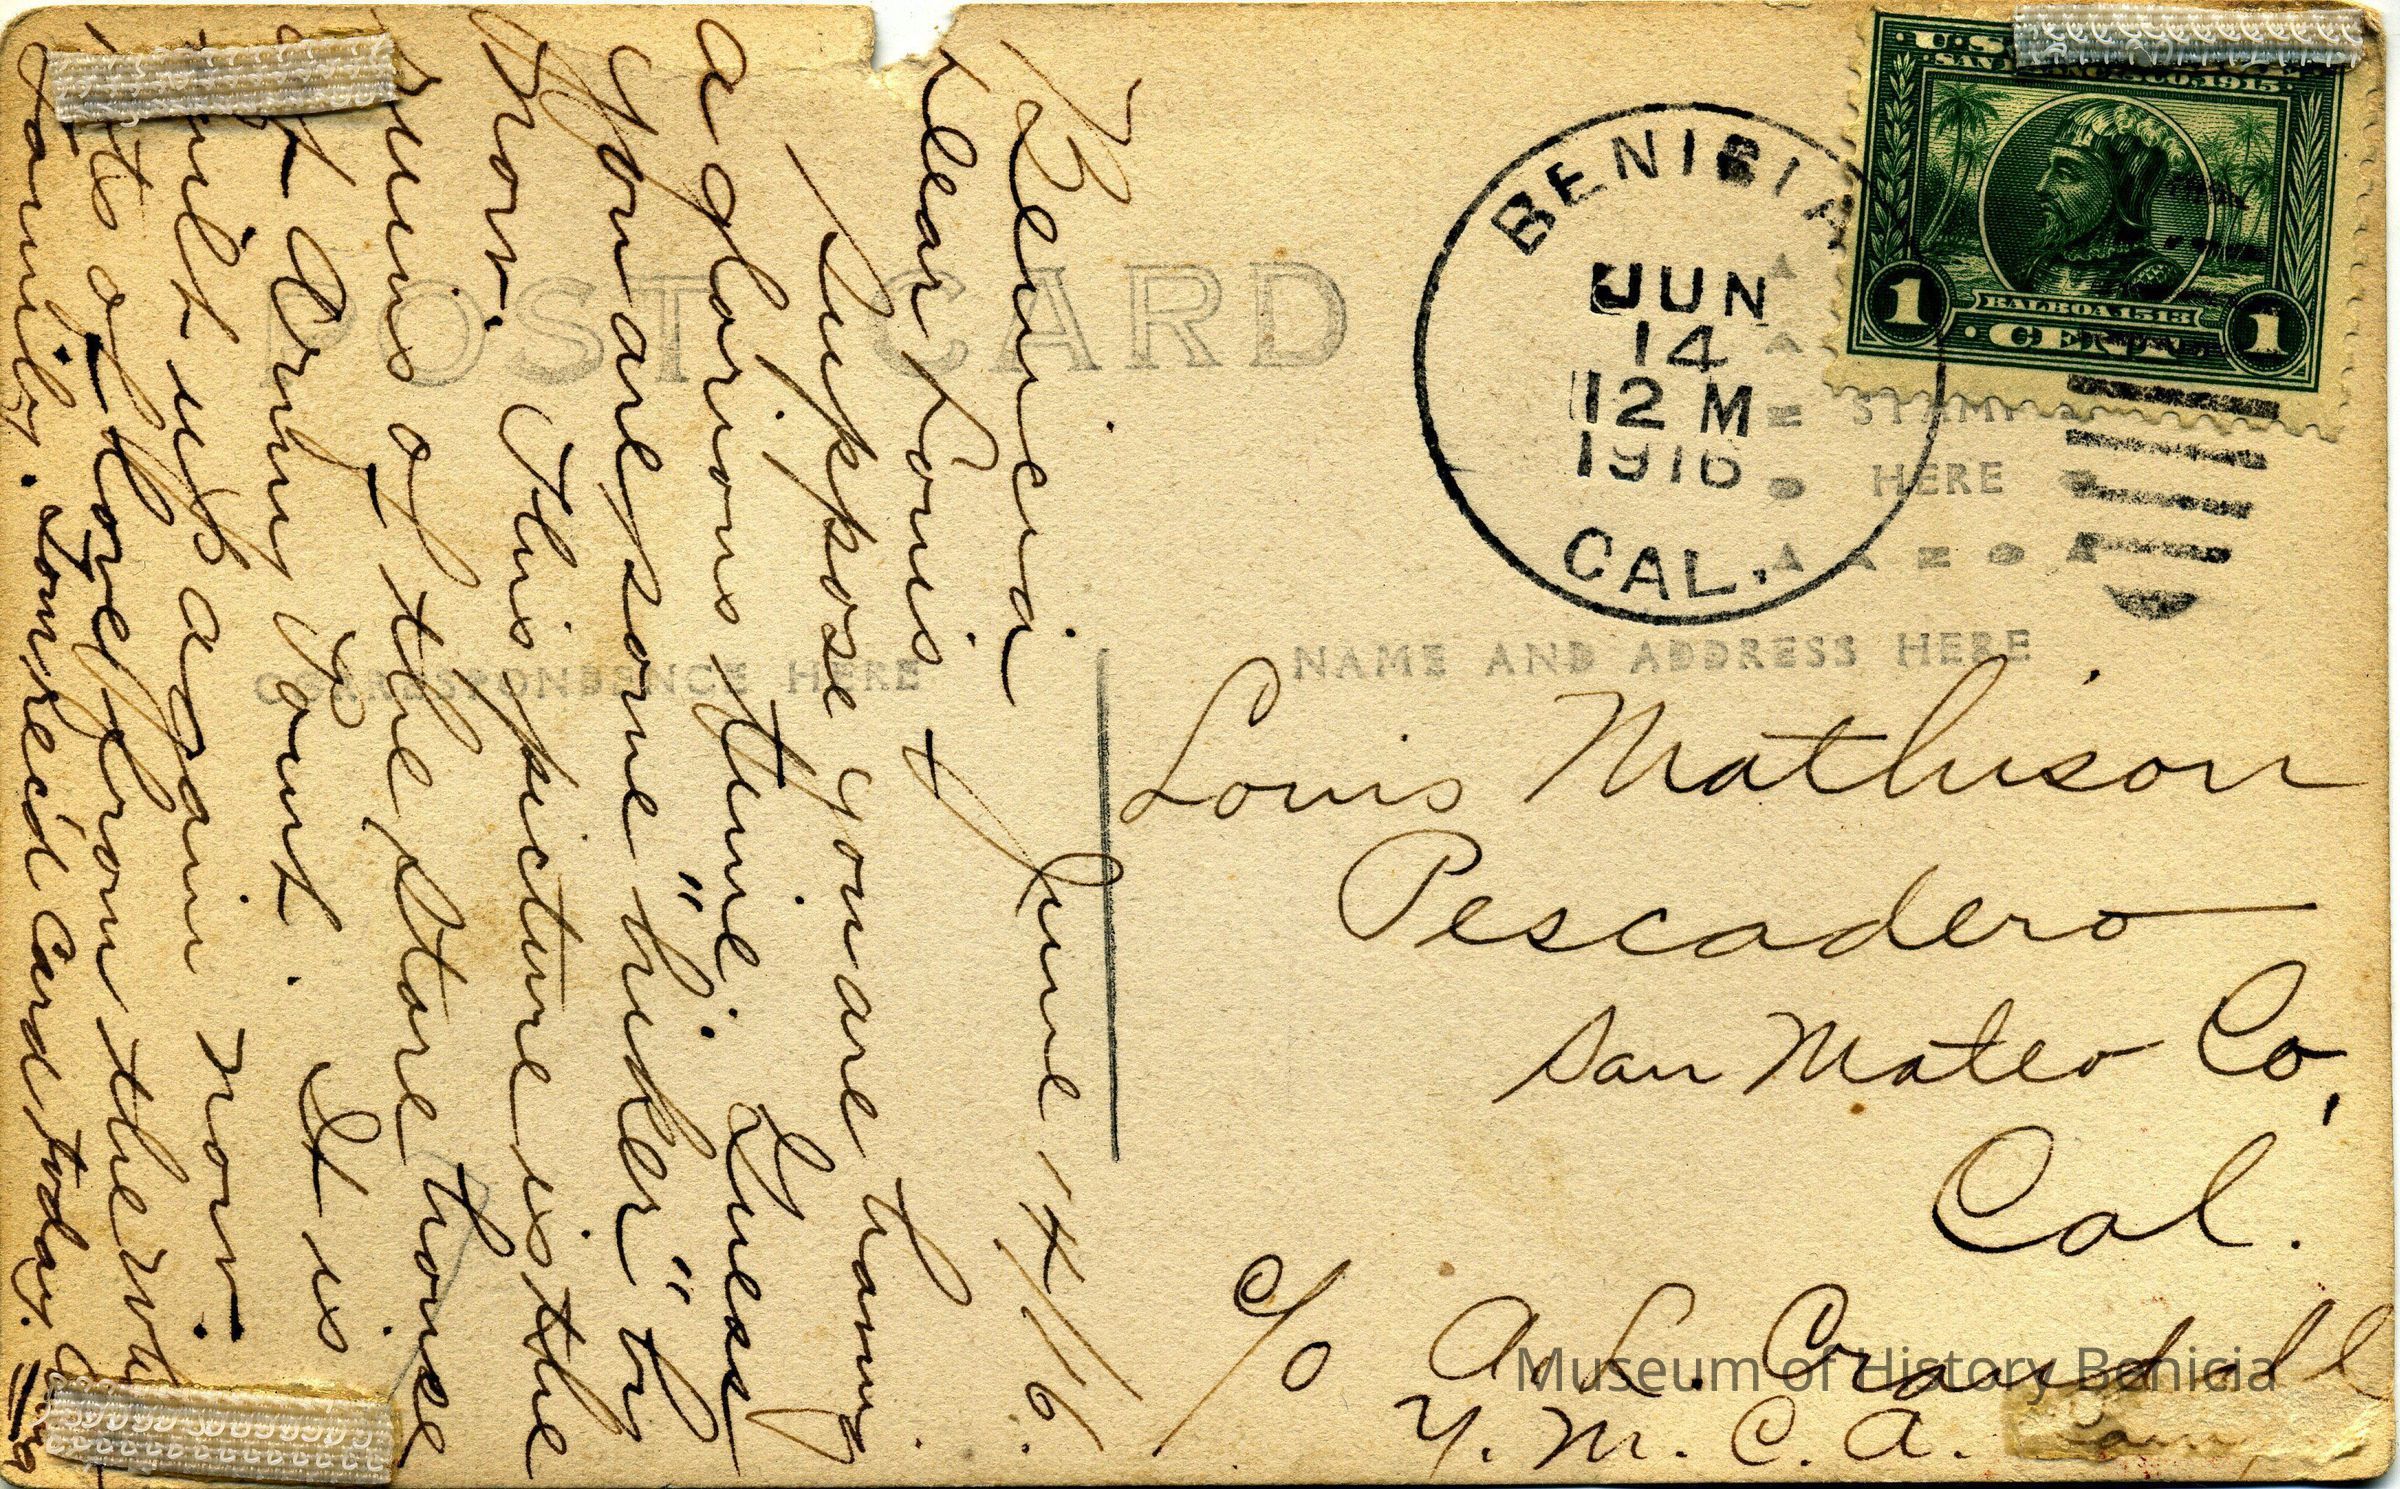 POST CARD
CORRESPONDENCE HERE
NAME AND ADDRESS HERE
STAMP
HERE
BENICIA
JUN
14
12 M
1916
CAL.
U.S.
SAN FRANCISCO, 1915
BALBOA 1513
1 CENT 1
Benicia June 14/16.
Dear Louis +
Suppose you are having
a glorious time. Guess
you are some "hiker" by
now. This picture is the
ruins of the store house
at Army Point. It is
built up again now.
lots of love from the
family. Tom rec'd card today.
Louis Mathison
Pescadero
San Mateo Co,
Cal.
c/o A. L. Crandall
Y. M. C. A.
Museum of History Benicia